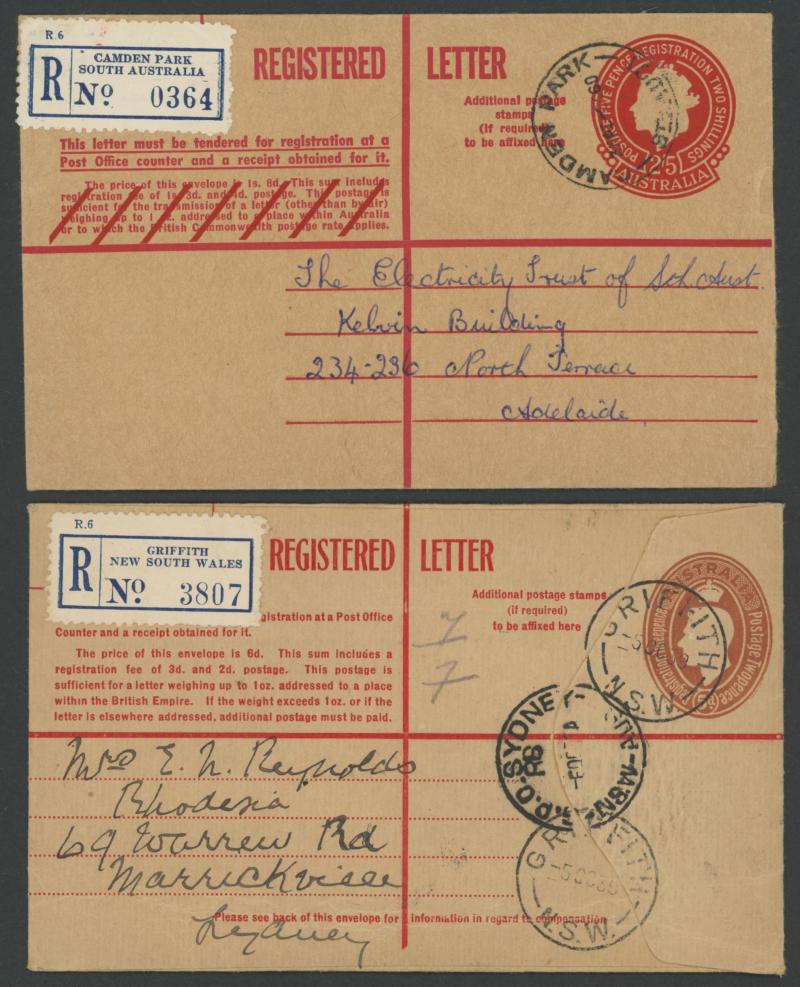 R.6
CAMDEN PARK
SOUTH AUSTRALIA
R No. 0364
REGISTERED LETTER
Additional postage
stamps
(If required)
to be affixed here
POSTAGE FIVE PENCE REGISTRATION TWO SHILLINGS
2/5
AUSTRALIA
CAMDEN PARK
STH AUST
This letter must be tendered for registration at a
Post Office counter and a receipt obtained for it.
The price of this envelope is 1s. 6d. This sum includes
registration fee of 1s. 3d. and 4d. postage. This postage is
sufficient for the transmission of a letter (other than by air)
weighing up to 1 oz. addressed to a place within Australia
or to which the British Commonwealth postage rate applies.
The Electricity Trust of Sth Aust.
Kelvin Building
234-236 North Terrace
Adelaide
R.6
GRIFFITH
NEW SOUTH WALES
R No. 3807
REGISTERED LETTER
Additional postage stamps
(if required)
to be affixed here
AUSTRALIA
Postage Twopence
GRIFFITH
N.S.W.
registration at a Post Office
Counter and a receipt obtained for it.
The price of this envelope is 6d. This sum includes a
registration fee of 3d. and 2d. postage. This postage is
sufficient for a letter weighing up to 1oz. addressed to a place
within the British Empire. If the weight exceeds 1oz. or if the
letter is elsewhere addressed, additional postage must be paid.
7
7
G.P.O. SYDNEY
R6
N.S.W-AUST
Mrs E. N. Reynolds
Rhodesia
69 Warren Rd
Marrickville
Sydney
GRIFFITH
N.S.W.
Please see back of this envelope for information in regard to compensation